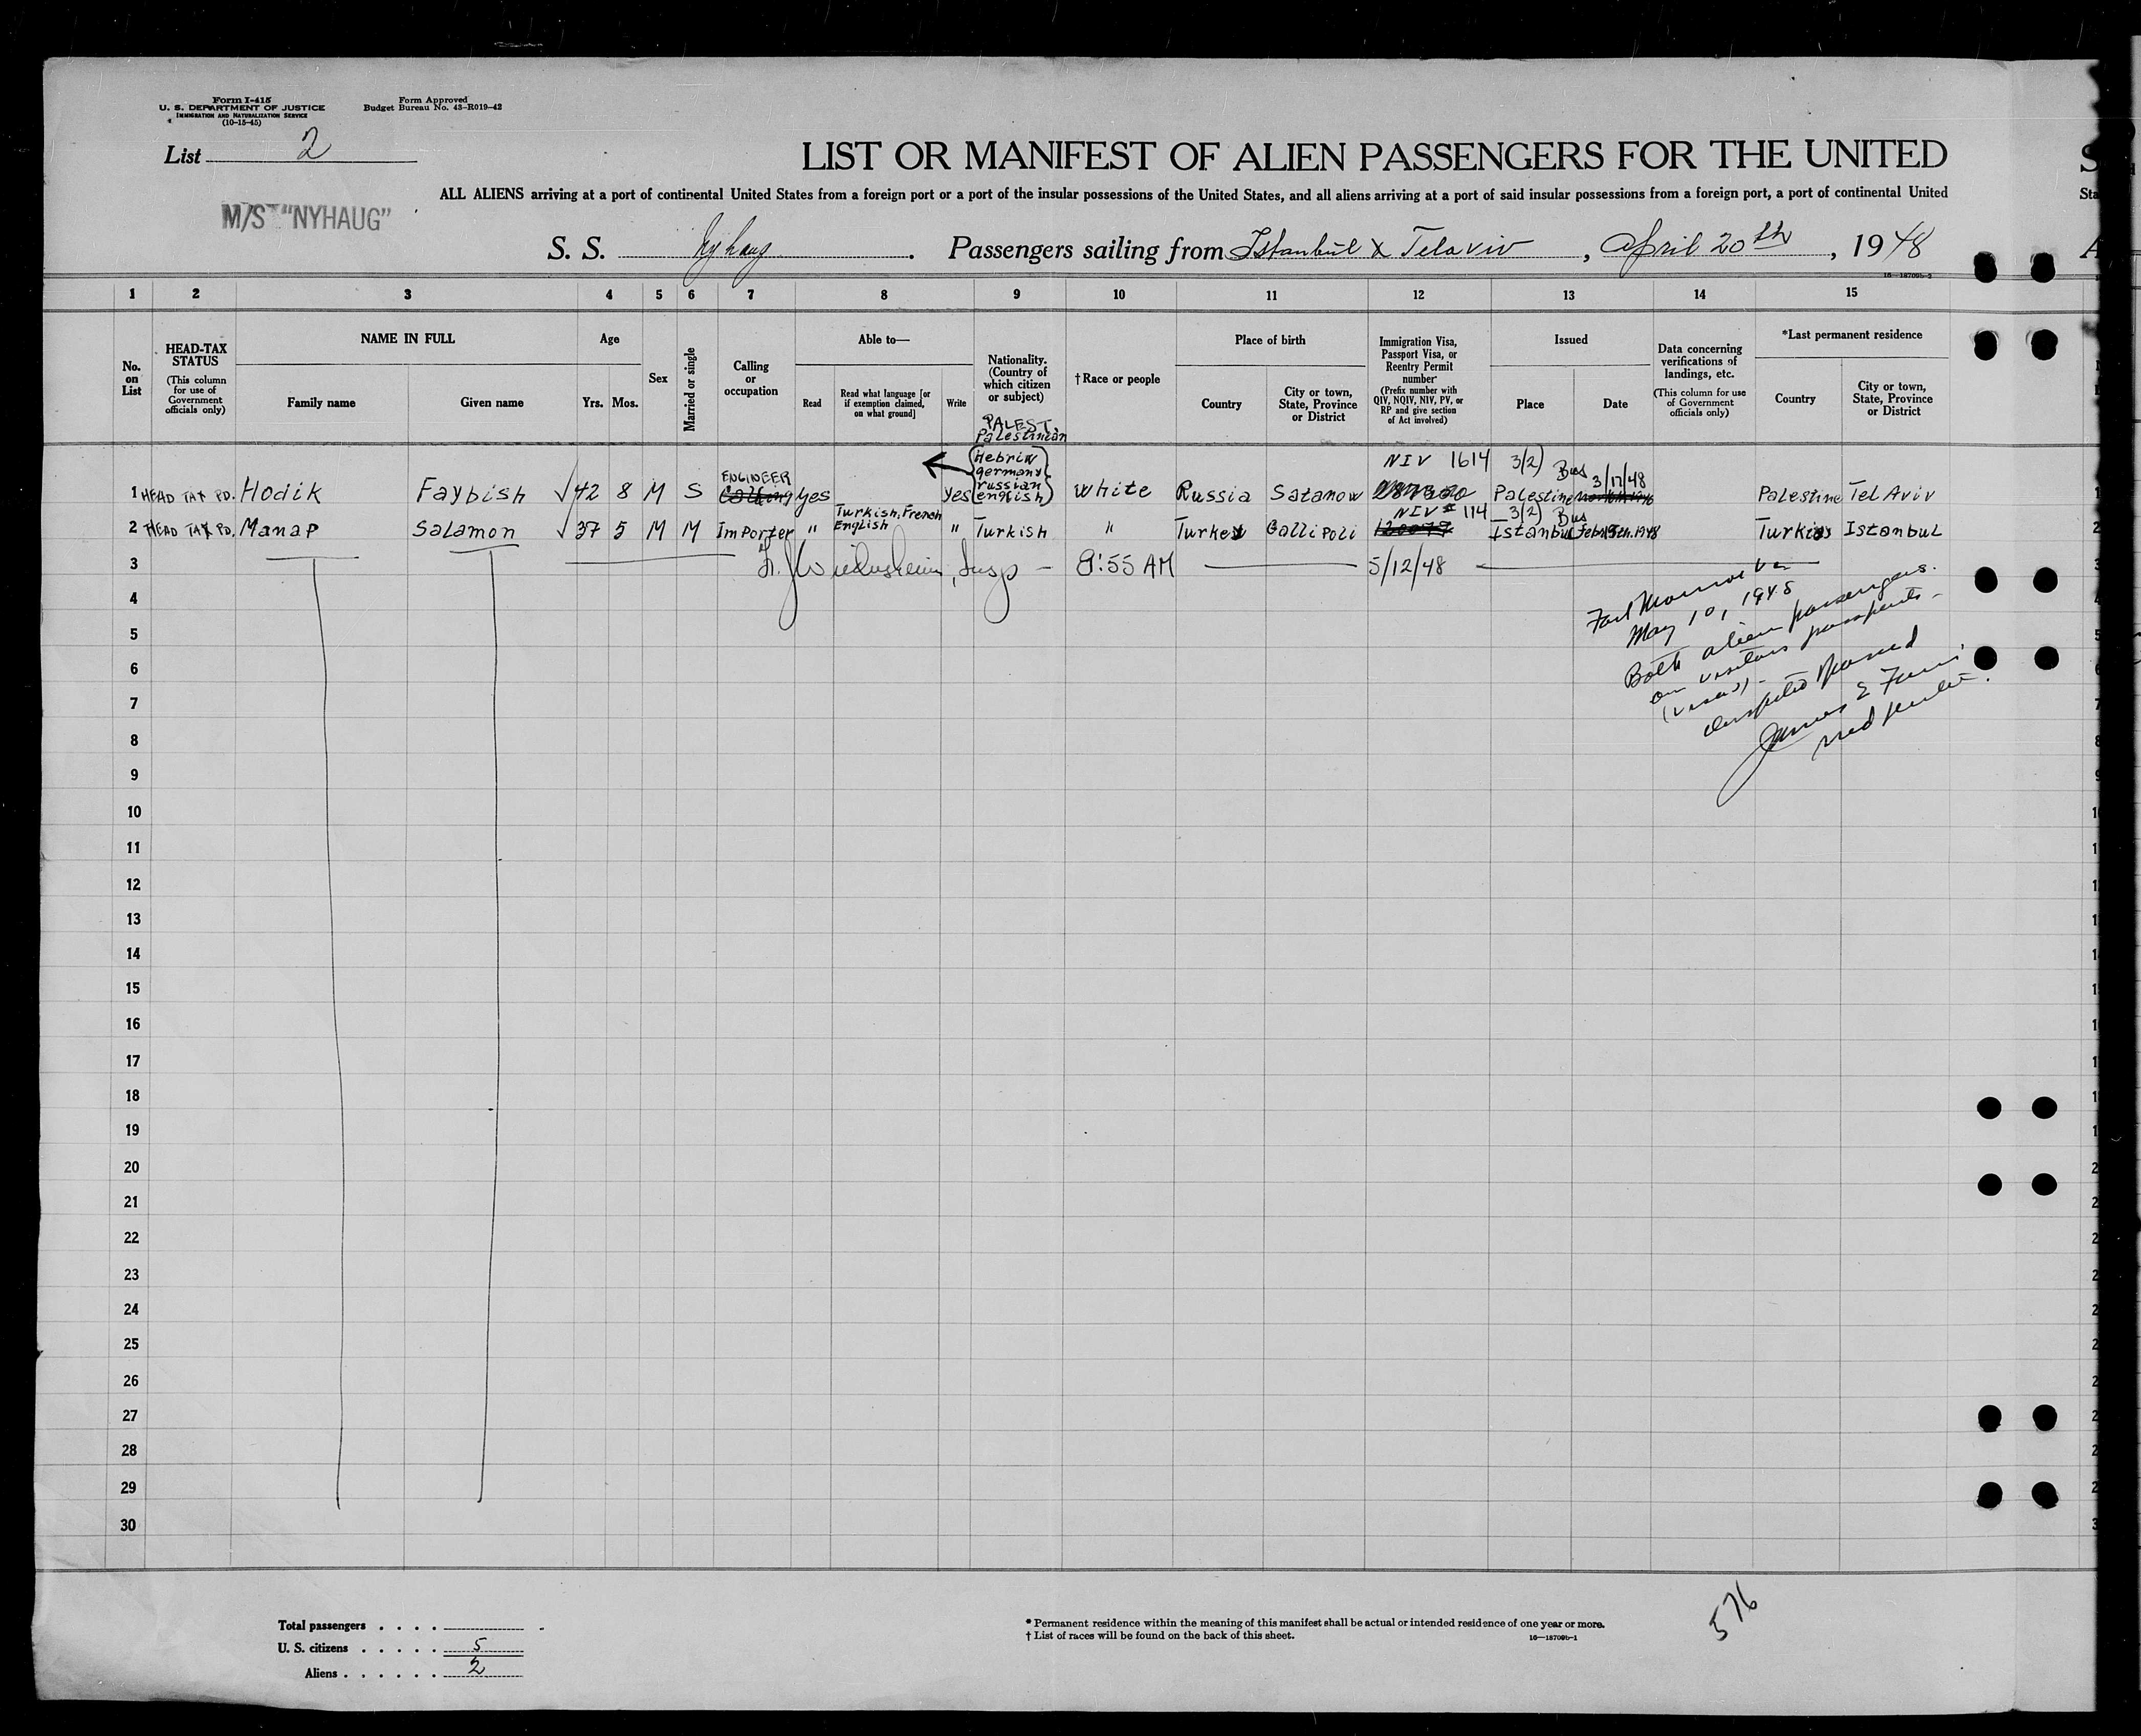 Form I-415
U. S. DEPARTMENT OF JUSTICE
IMMIGRATION AND NATURALIZATION SERVICE
(10-15-45)
Form Approved
Budget Bureau No. 43-R019-42
List 2
LIST OR MANIFEST OF ALIEN PASSENGERS FOR THE UNITED
ALL ALIENS arriving at a port of continental United States from a foreign port or a port of the insular possessions of the United States, and all aliens arriving at a port of said insular possessions from a foreign port, a port of continental United
M/S "NYHAUG"
S. S. Nyhaug. Passengers sailing from Istanbul & Telaviv, April 20th, 1948
16—18709b-2
1 2 3 4 5 6 7 8 9 10 11 12 13 14 15
No. on List
HEAD-TAX STATUS
(This column for use of Government officials only)
NAME IN FULL
Family name
Given name
Age
Yrs. Mos.
Sex
Married or single
Calling or occupation
Able to—
Read
Read what language [or if exemption claimed, on what ground]
Write
Nationality. (Country of which citizen or subject)
†Race or people
Place of birth
Country
City or town, State, Province or District
Immigration Visa, Passport Visa, or Reentry Permit number
(Prefix number with QIV, NQIV, NIV, PV, or RP and give section of Act involved)
Issued
Place
Date
Data concerning verifications of landings, etc.
(This column for use of Government officials only)
*Last permanent residence
Country
City or town, State, Province or District
PALEST.
Palestinian
1 HEAD TAX PD. Hodik Faybish √ 42 8 M S ENGINEER Yes Yes (Hebriw germany russian english) White Russia Satanow NIV 1614 3(2) Bus Palestine 3/17/48 Palestine Tel Aviv
2 HEAD TAX PD. Manap Salamon √ 37 5 M M Importer " Turkish, French English " Turkish " Turkey Gallipoli NIV # 114 3(2) Bus Istanbul Feb. 1948 Istanbul
3 Insp — 8:55 AM 5/12/48
4
5
6
7
8
9
10
11
12
13
14
15
16
17
18
19
20
21
22
23
24
25
26
27
28
29
30
Fort Monroe Va
May 10, 1948
Both alien passengers
on visitors passports -
(visas) -
inspected passed
James E
Total passengers
U. S. citizens 5
Aliens 2
* Permanent residence within the meaning of this manifest shall be actual or intended residence of one year or more.
† List of races will be found on the back of this sheet.
16—18709b-1
576